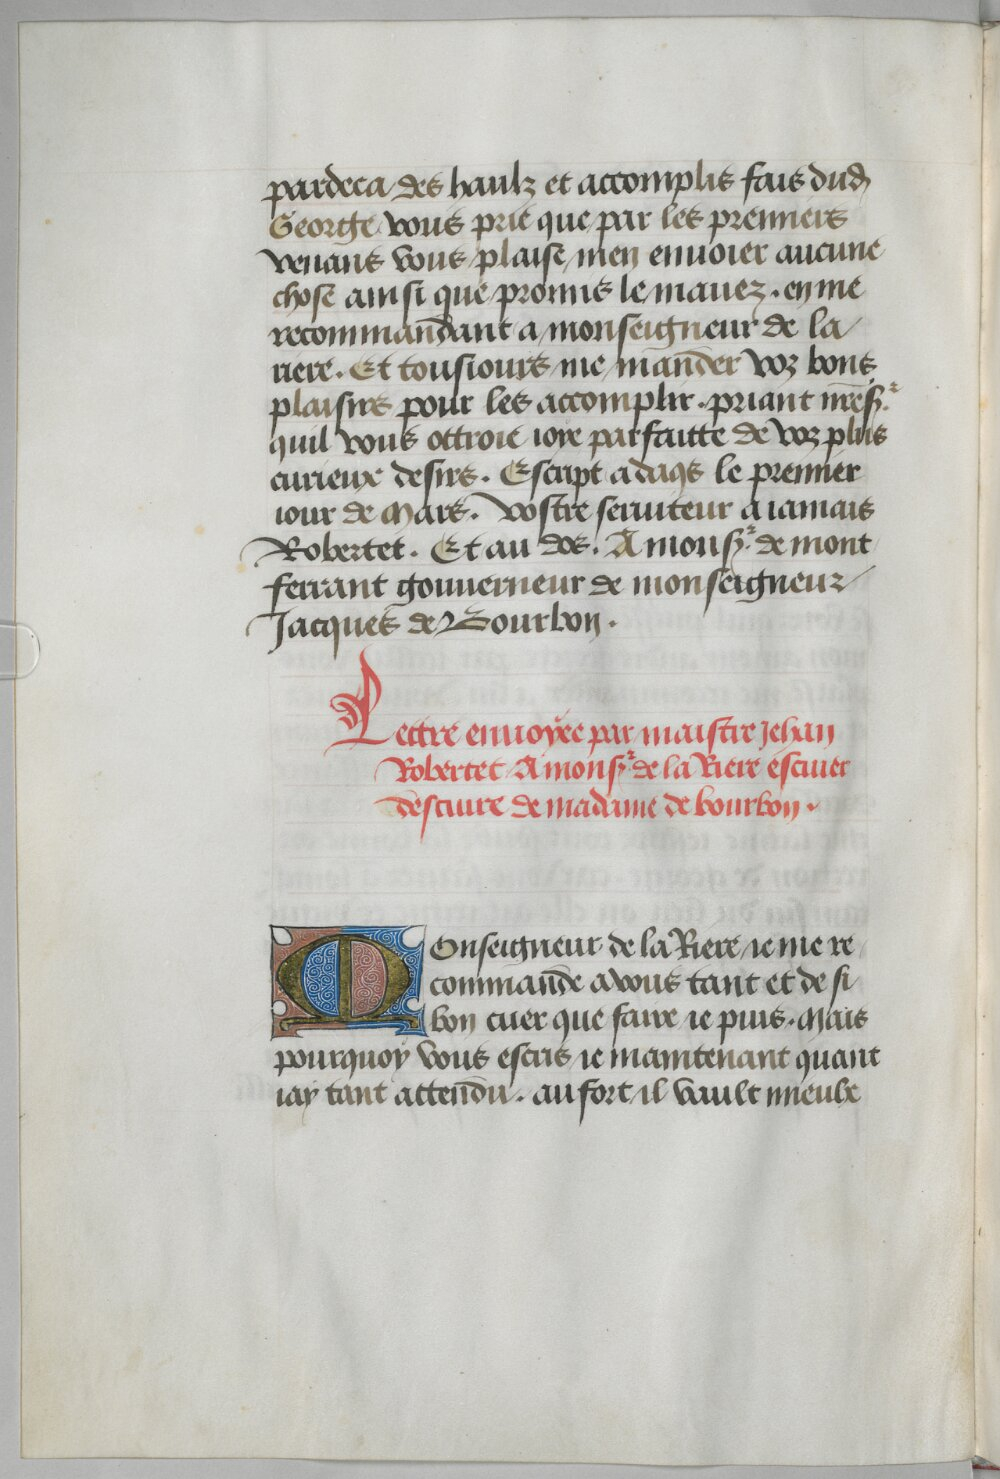 pardeca des haulz et accomplis fais dud
George vous prie que par les premiers
venans vous plaise men enuoier aucune
chose ainsi que promis le mauez. en me
recommandant a monseigneur de la
riere. Et tousiours me mander voz bons
plaisirs pour les accomplir. priant nr̄e sr̄
quil vous ottroie ioye parfaitte de voz plus
curieux desirs. Escript a daqs le premier
iour de Mars. vostre seruiteur a iamais
Robertet. Et au dos. A monsr̄ de mont
ferrant gouuerneur de monseigneur
Jacques de Bourbon.
Lettre enuoyee par maistre Jehan
Robertet A monsr̄ de la Riere escuier
descuire de madame de bourbon.
Monseigneur de la Riere ie me re
commande a vous tant et de si
bon cuer que faire ie puis. Mais
pourquoy vous escris ie maintenant quant
iay tant attendu. au fort il vault mieulx